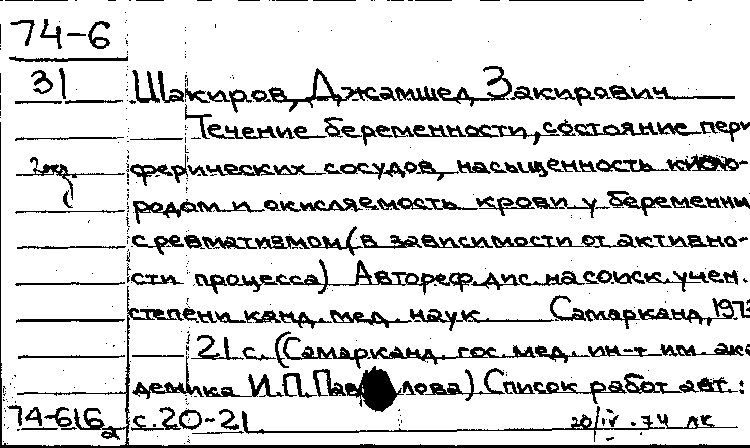 74-6
31
Шакиров, Джамшед Закирович
Течение беременности, состояние пери
2 экз.
ферических сосудов, насыщенность кисло-
родом и окисляемость крови у беременны
с ревматизмом (в зависимости от активно-
сти процесса) Автореф. дис. на соиск. учен.
степени канд. мед. наук. Самарканд, 1973
21 с. (Самарканд. гос. мед. ин-т им. ака
демика И.П. Павлова). Список работ авт.:
74-616 с. 20-21
20/IV.74 ЛК